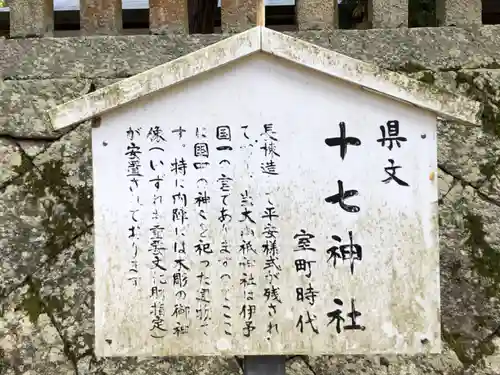 県文
十七神社
室町時代
長棟造 て平安様式が残され
て 大山祇神社は伊予
国一の宮であります ここ
に国 の神々を祀った建物で
す。特に内陣には木彫の御神
像(いずれも重要文化財指定)
が安置されております